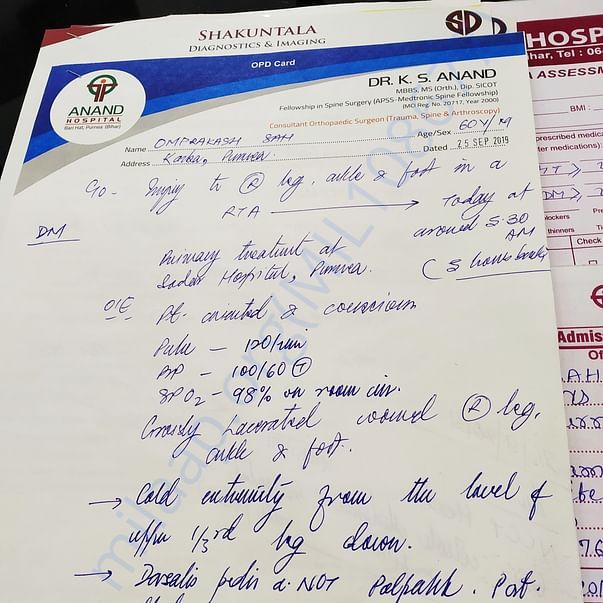 SHAKUNTALA
DIAGNOSTICS & IMAGING
OPD Card
ANAND
HOSPITAL
Bari Hat, Purnea (Bihar)
DR. K. S. ANAND
MBBS, MS (Orth.), Dip. SICOT
Fellowship in Spine Surgery (APSS-Medtronic Spine Fellowship)
(MCI Reg. No. 20717, Year 2000)
Consultant Orthopaedic Surgeon (Trauma, Spine & Arthroscopy)
Name OMPRAKASH SAH Age/Sex 60Y/M
Address Purnea Dated 25 SEP 2019
C/o - Injury to (R) leg, ankle & foot in a
RTA → Today at
around 5:30
AM
(5 hours back)
DM
Primary treatment at
Sadar Hospital, Purnea.
O/E Pt. oriented & conscious
Pulse - 120/min
BP - 100/60
SPO2 - 98% on room air.
Grossly lacerated wound (R) leg,
ankle & foot.
→ Cold extremity from the level of
upper 1/3rd leg down.
→ Dorsalis pedis a. NOT Palpable. Post.
SD
HOSP
har, Tel : 06
ASSESSM
BMI :
prescribed medica
ter medications):
Check
Admis
Of